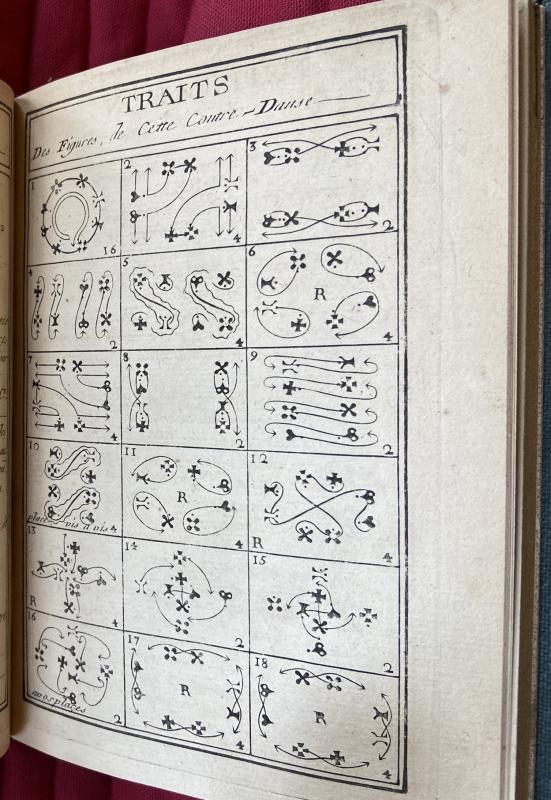 TRAITS
Des Figures, de Cette Contre-Danse
1
16
2
4
3
2
4
2
5
4
6
R
4
7
4
8
2
9
2
10
place vis a vis 4
11
R
4
12
R
4
13
R
4
14
2
15
2
16
a vos places
2
17
R
4
18
R
4